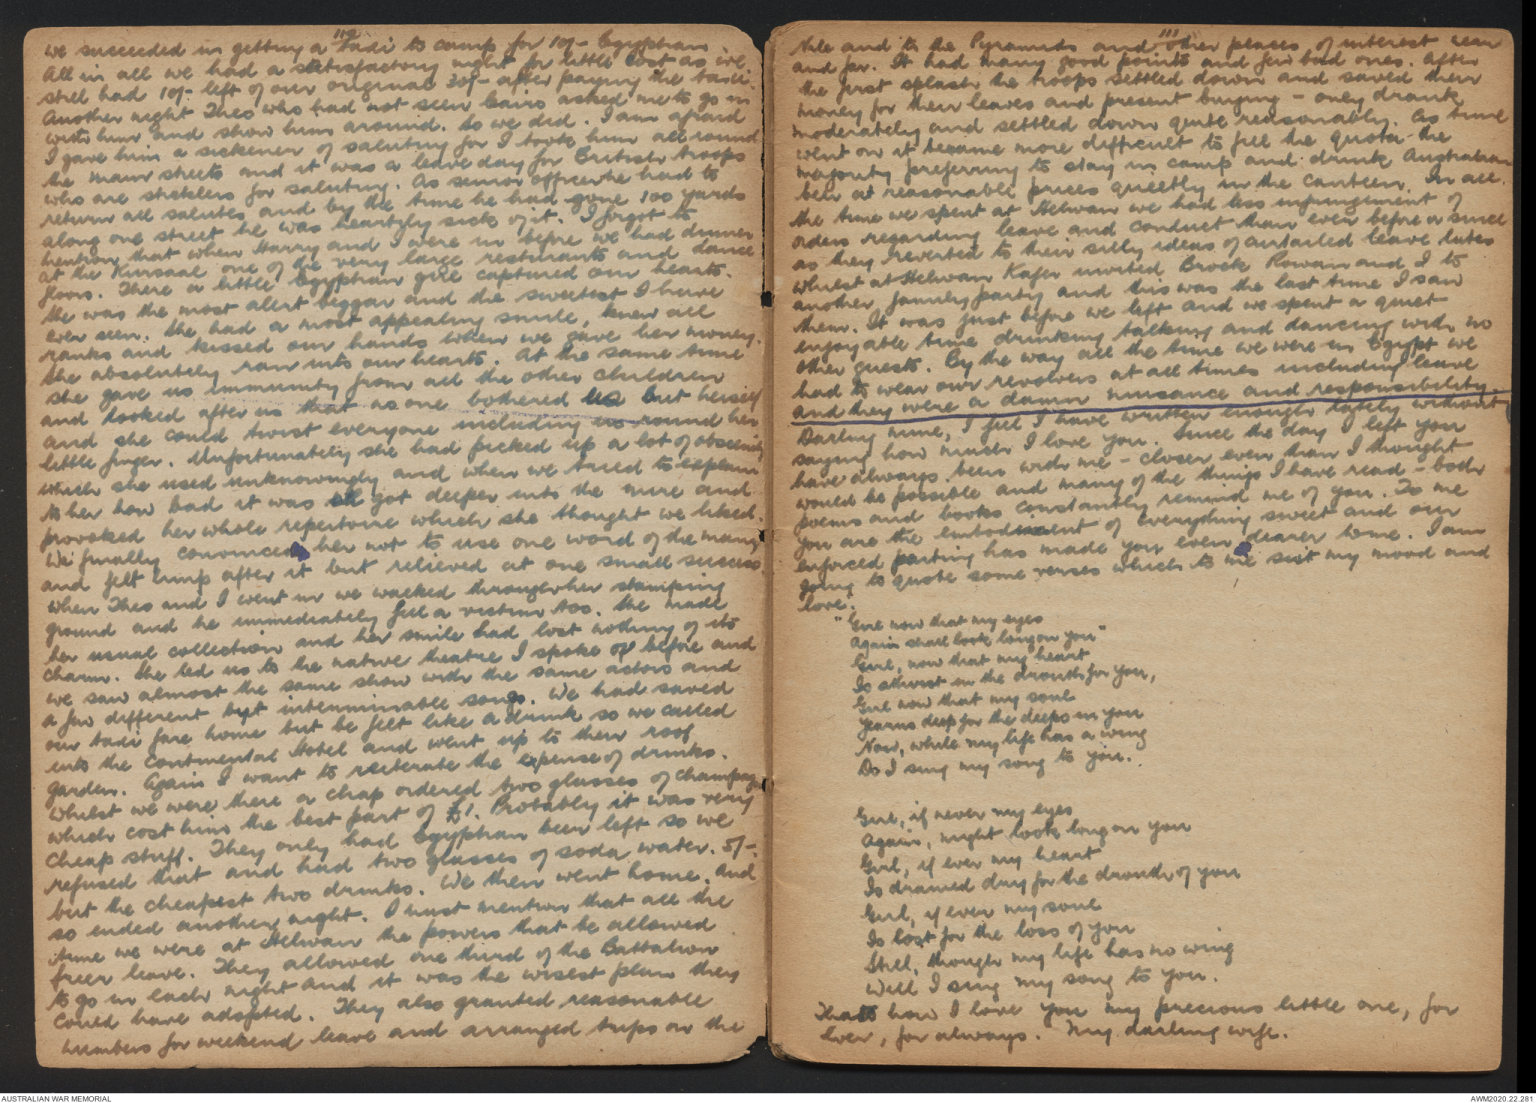 112
we succeeded in getting a Tadi to camp for 10/- Egyptian.
All in all we had a satisfactory night for little cost as we
still had 10/- left of our original 30/- after paying the taxi.
Another night Theo who had not seen Cairo asked me to go in
with him and show him around. So we did. I am afraid
I gave him a sickener of saluting for I took him all round
the main streets and it was a leave day for British troops
who are sticklers for saluting. As senior officer he had to
return all salutes and by the time he had gone 100 yards
along one street he was heartily sick of it. I forgot to
mention that when Harry and I were in before we had dinner
at the Kursaal one of the very large resturants and dance
floors. There a little Egyptian girl captured our hearts.
She was the most alert beggar and the sweetest I have
ever seen. She had a most appealing smile, knew all
ranks and kissed our hands when we gave her money.
She absolutely ran into our hearts. At the same time
she gave us immunity from all the other children
and looked after us that no one bothered us but herself
and she could twist everyone including us round her
little finger. Unfortunately she had picked up a lot of obscenity
which she used unknowingly and when we tried to explain
to her how bad it was got deeper into the mire and
provoked her whole repertoire which she thought we liked.
We finally convinced her not to use one word of the many
and felt limp after it but relieved at one small success.
When Theo and I went in we walked through her stamping
ground and he immediately fell a victim too. She made
her usual collection and her smile had lost nothing of its
charm. She led us to the native theatre I spoke of before and
we saw almost the same show with the same actors and
a few different but interminable songs. We had saved
our tadi fare home but he felt like a drink so we called
into the Continental Hotel and went up to their roof
garden. Again I want to reiterate the expense of drinks.
Whilst we were there a chap ordered two glasses of champagne
which cost him the best part of £1. Probably it was very
cheap stuff. They only had Egyptian beer left so we
refused that and had two glasses of soda water. 5/-.
but the cheapest two drinks. We then went home. And
so ended another night. I must mention that all the
time we were at Helwan the powers that be allowed
freer leave. They allowed one third of the Battalion
to go in each night and it was the wisest plan they
could have adopted. They also granted reasonable
numbers for weekend leave and arranged trips on the
111
Nile and to the Pyramids and other places of interest near
and far. It had many good points and few bad ones. After
the first splash the troops settled down and saved their
money for their leaves and present buying - only drank
moderately and settled down quite reasonably. As time
went on it became more difficult to fill the quota the
majority preferring to stay in camp and drink Australian
beer at reasonable prices quietly in the canteen. In all
the time we spent at Helwan we had less infringement of
orders regarding leave and conduct than ever before or since
as they reverted to their silly ideas of curtailed leave later
Whilst at Helwan Kafer invited Brock Rowan and I to
another family party and this was the last time I saw
them. It was just before we left and we spent a quiet
enjoyable time drinking talking and dancing with no
other guests. By the way all the time we were in Egypt we
had to wear our revolvers at all times including leave
and they were a damn nuisance and responsibility.
Darling mine, I feel I have written enough lately without
saying how much I love you. Since the day I left you
have always been with me - closer even than I thought
would be possible and many of the things I have read - both
poems and books constantly remind me of you. To me
you are the embodiment of everything sweet and our
enforced parting has made you even dearer to me. I am
going to quote some verses which to me suit my mood and
love.
"Girl now that my eyes
Again shall look long on you"
Girl, now that my heart
Is athirst in the drouth for you,
Girl now that my soul
Yearns deep for the deeps in you
Now, while my life has a wing
Do I sing my song to you.
Girl, if never my eyes
Again, might look long on you
Girl, if ever my heart
Is drained dry for the drouth of you
Girl, if ever my soul
Is lost for the loss of you
Still, though my life has no wing
Will I sing my song to you.
Thats how I love you my precious little one, for
ever, for always. My darling wife.
AUSTRALIAN WAR MEMORIAL
AWM2020.22.281